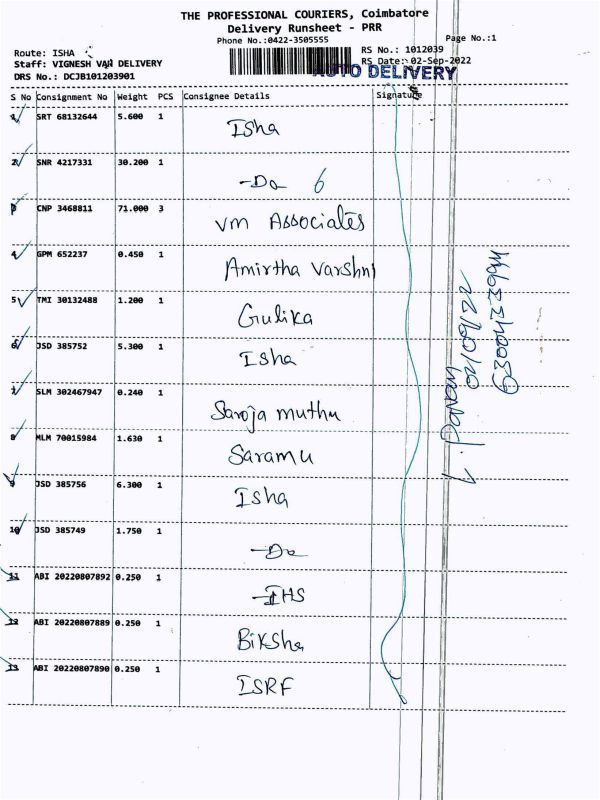 THE PROFESSIONAL COURIERS, Coimbatore
Delivery Runsheet - PRR
Phone No.:0422-3505555
Page No.:1
Route: ISHA
RS No.: 1012039
Staff: VIGNESH VAN DELIVERY
RS Date: 02-Sep-2022
AUTO DELIVERY
DRS No.: DCJB101203901
S No Consignment No Weight PCS Consignee Details Signature
1 SRT 68132644 5.600 1 Isha
2 SNR 4217331 30.200 1 -Do 6
3 CNP 3468811 71.000 3 VM Associates
4 GPM 652237 0.450 1 Amirtha Varshni
5 TMI 30132488 1.200 1 Gulika
6 JSD 385752 5.300 1 Isha
7 SLM 302467947 0.240 1 Saroja muthu
8 MLM 70015984 1.630 1 Saramu
9 JSD 385756 6.300 1 Isha
10 JSD 385749 1.750 1 -Do
11 ABI 20220807892 0.250 1 -IHS
12 ABI 20220807889 0.250 1 Biksha
13 ABI 20220807890 0.250 1 ISRF
L. Pavan
02/09/22